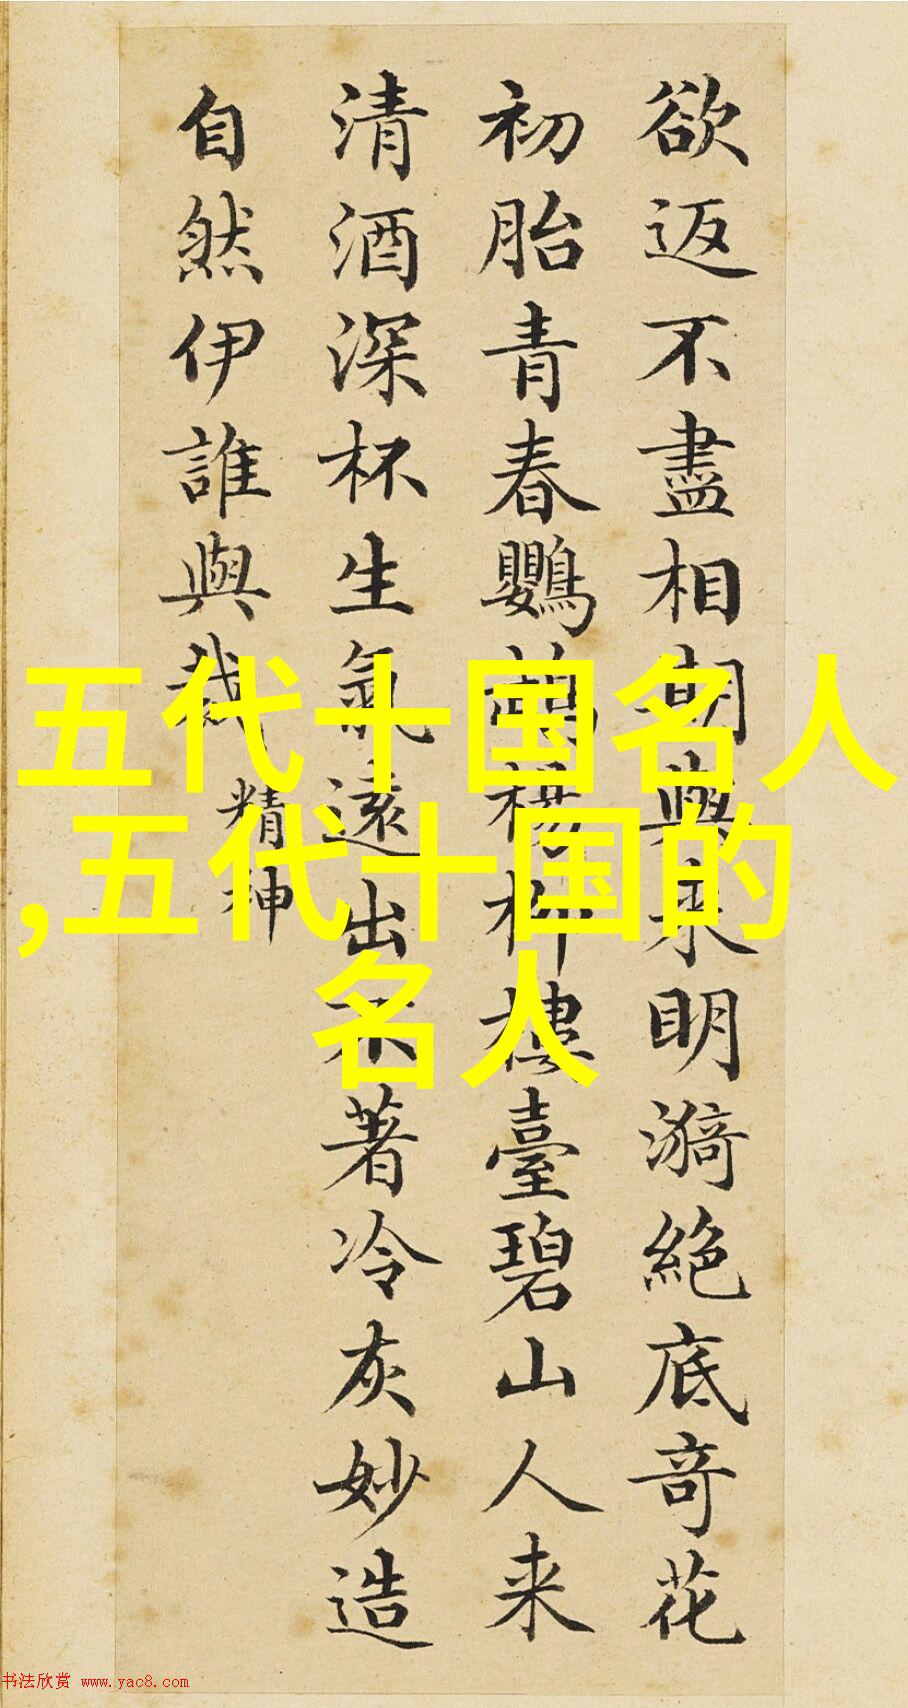 欲返不盡相期與来明漪絕底奇花
初胎青春鸚鵡楊柳樓臺碧山人来
清酒深杯生氣遠出不著冷灰妙造
自然伊誰與裁 精神
五代十国名人
,五代十国的
名人
书法欣赏 www.yac8.com